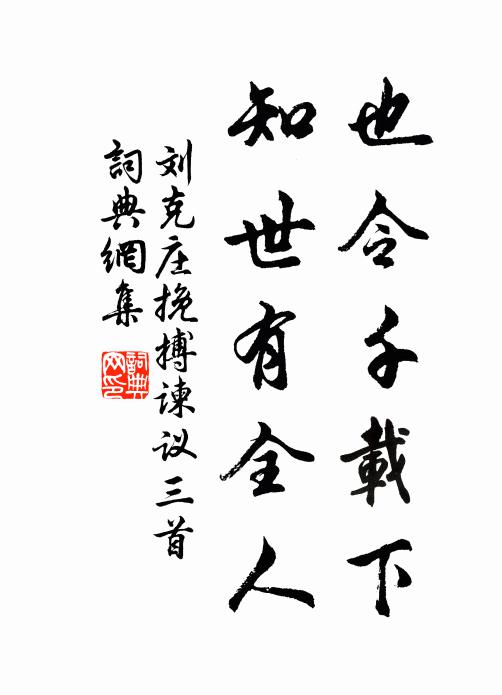 也令千載下
知世有全人
刘克庄挽搏谏议三首
詞典網集
詞典网印